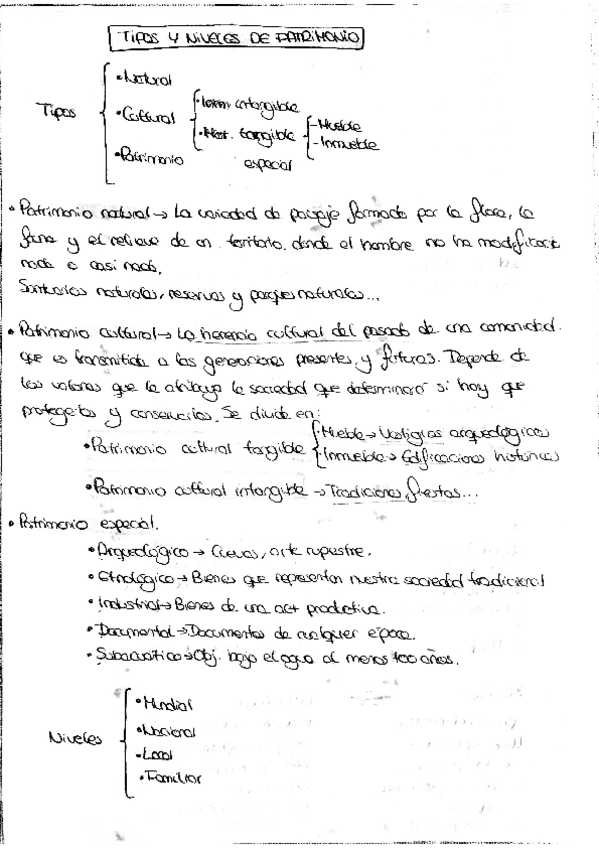 TIPOS Y NIVELES DE PATRIMONIO
Tipos
• Natural
• Cultural
• Inm. intangible
• Mat. tangible
- Mueble
- Inmueble
• Patrimonio especial
• Patrimonio natural → La variedad de paisaje formado por la flora, la
fauna y el relieve de un territorio donde el hombre no ha modificado
nada o casi nada.
Santuarios naturales, reservas y parques naturales...
• Patrimonio cultural → La herencia cultural del pasado de una comunidad
que es transmitida a las generaciones presentes y futuras. Depende de
los valores que le atribuya la sociedad que determinará si hay que
protegerlos y conservarlos. Se divide en:
• Patrimonio cultural tangible
Mueble → Vestigios arqueológicos
Inmueble → Edificaciones históricas
• Patrimonio cultural intangible → Tradiciones, fiestas...
• Patrimonio especial.
• Arqueológico → Cuevas, arte rupestre.
• Etnológico → Bienes que representan nuestra sociedad tradicional
• Industrial → Bienes de una act productiva.
• Documental → Documentos de cualquier época.
• Subacuático → Obj. bajo el agua al menos 100 años.
Niveles
• Mundial
• Nacional
• Local
• Familiar